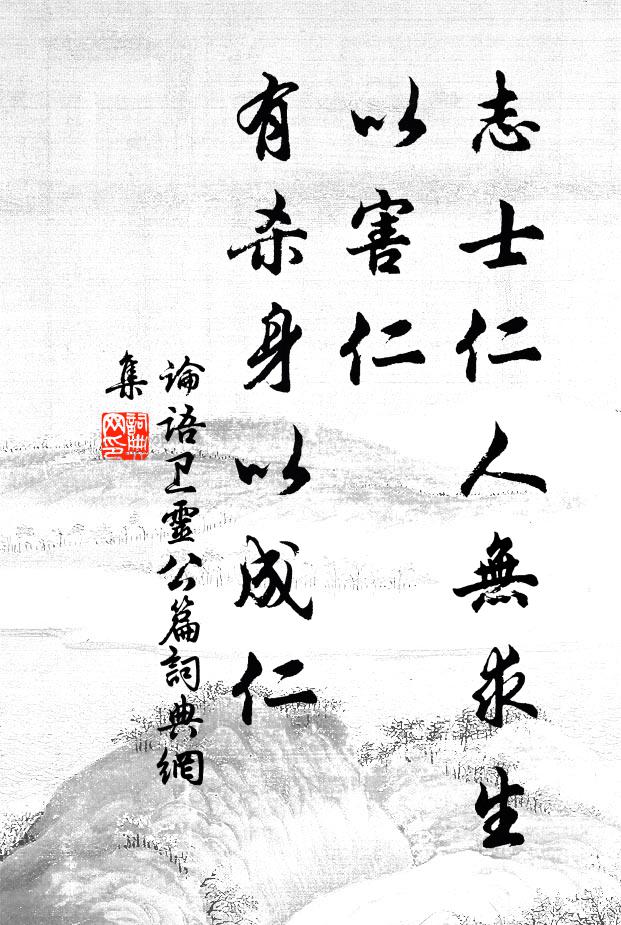 志士仁人無求生
以害仁
有杀身以成仁
論语卫靈公篇詞典網
集
詞典网印